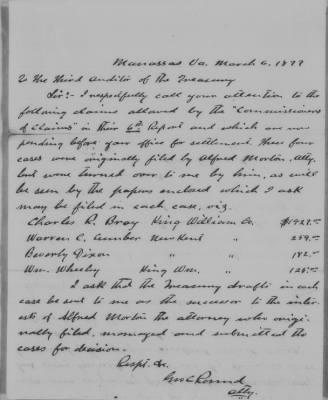 Manassas Va. March 6. 1877
To the Third Auditor of the Treasury
Sir:- I respectfully call your attention to the
following claims allowed by the "Commissioners
of Claims" in their 6th Report and which are now
pending before your office for settlement. These four
cases were originally filed by Alfred Morton, Atty.
but were turned over to me by him, as will
be seen by the papers enclosed which I ask
may be filed in each case, viz.
Charles R. Bray King William Co.
Warren C. Cumber New Kent "
Beverly Dixon " " 182.00
Wm. Wheeby King Wm. "
I ask that the Treasury drafts in each
case be sent to me as the successor to the inter-
ests of Alfred Morton the attorney who origi-
nally filed, managed and submitted the
cases for decision.
Respt. &c.
Geo C Round
Atty.